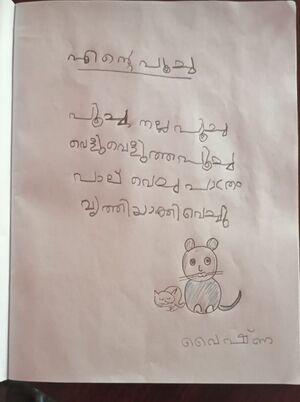 എന്റെ പൂച്ച
പൂച്ച നല്ല പൂച്ച
വെളുവെളുത്തപൂച്ച
പാല് വെച്ച പാത്രം
വൃത്തിയാക്കിവെച്ചു
വൈഷ്ണ